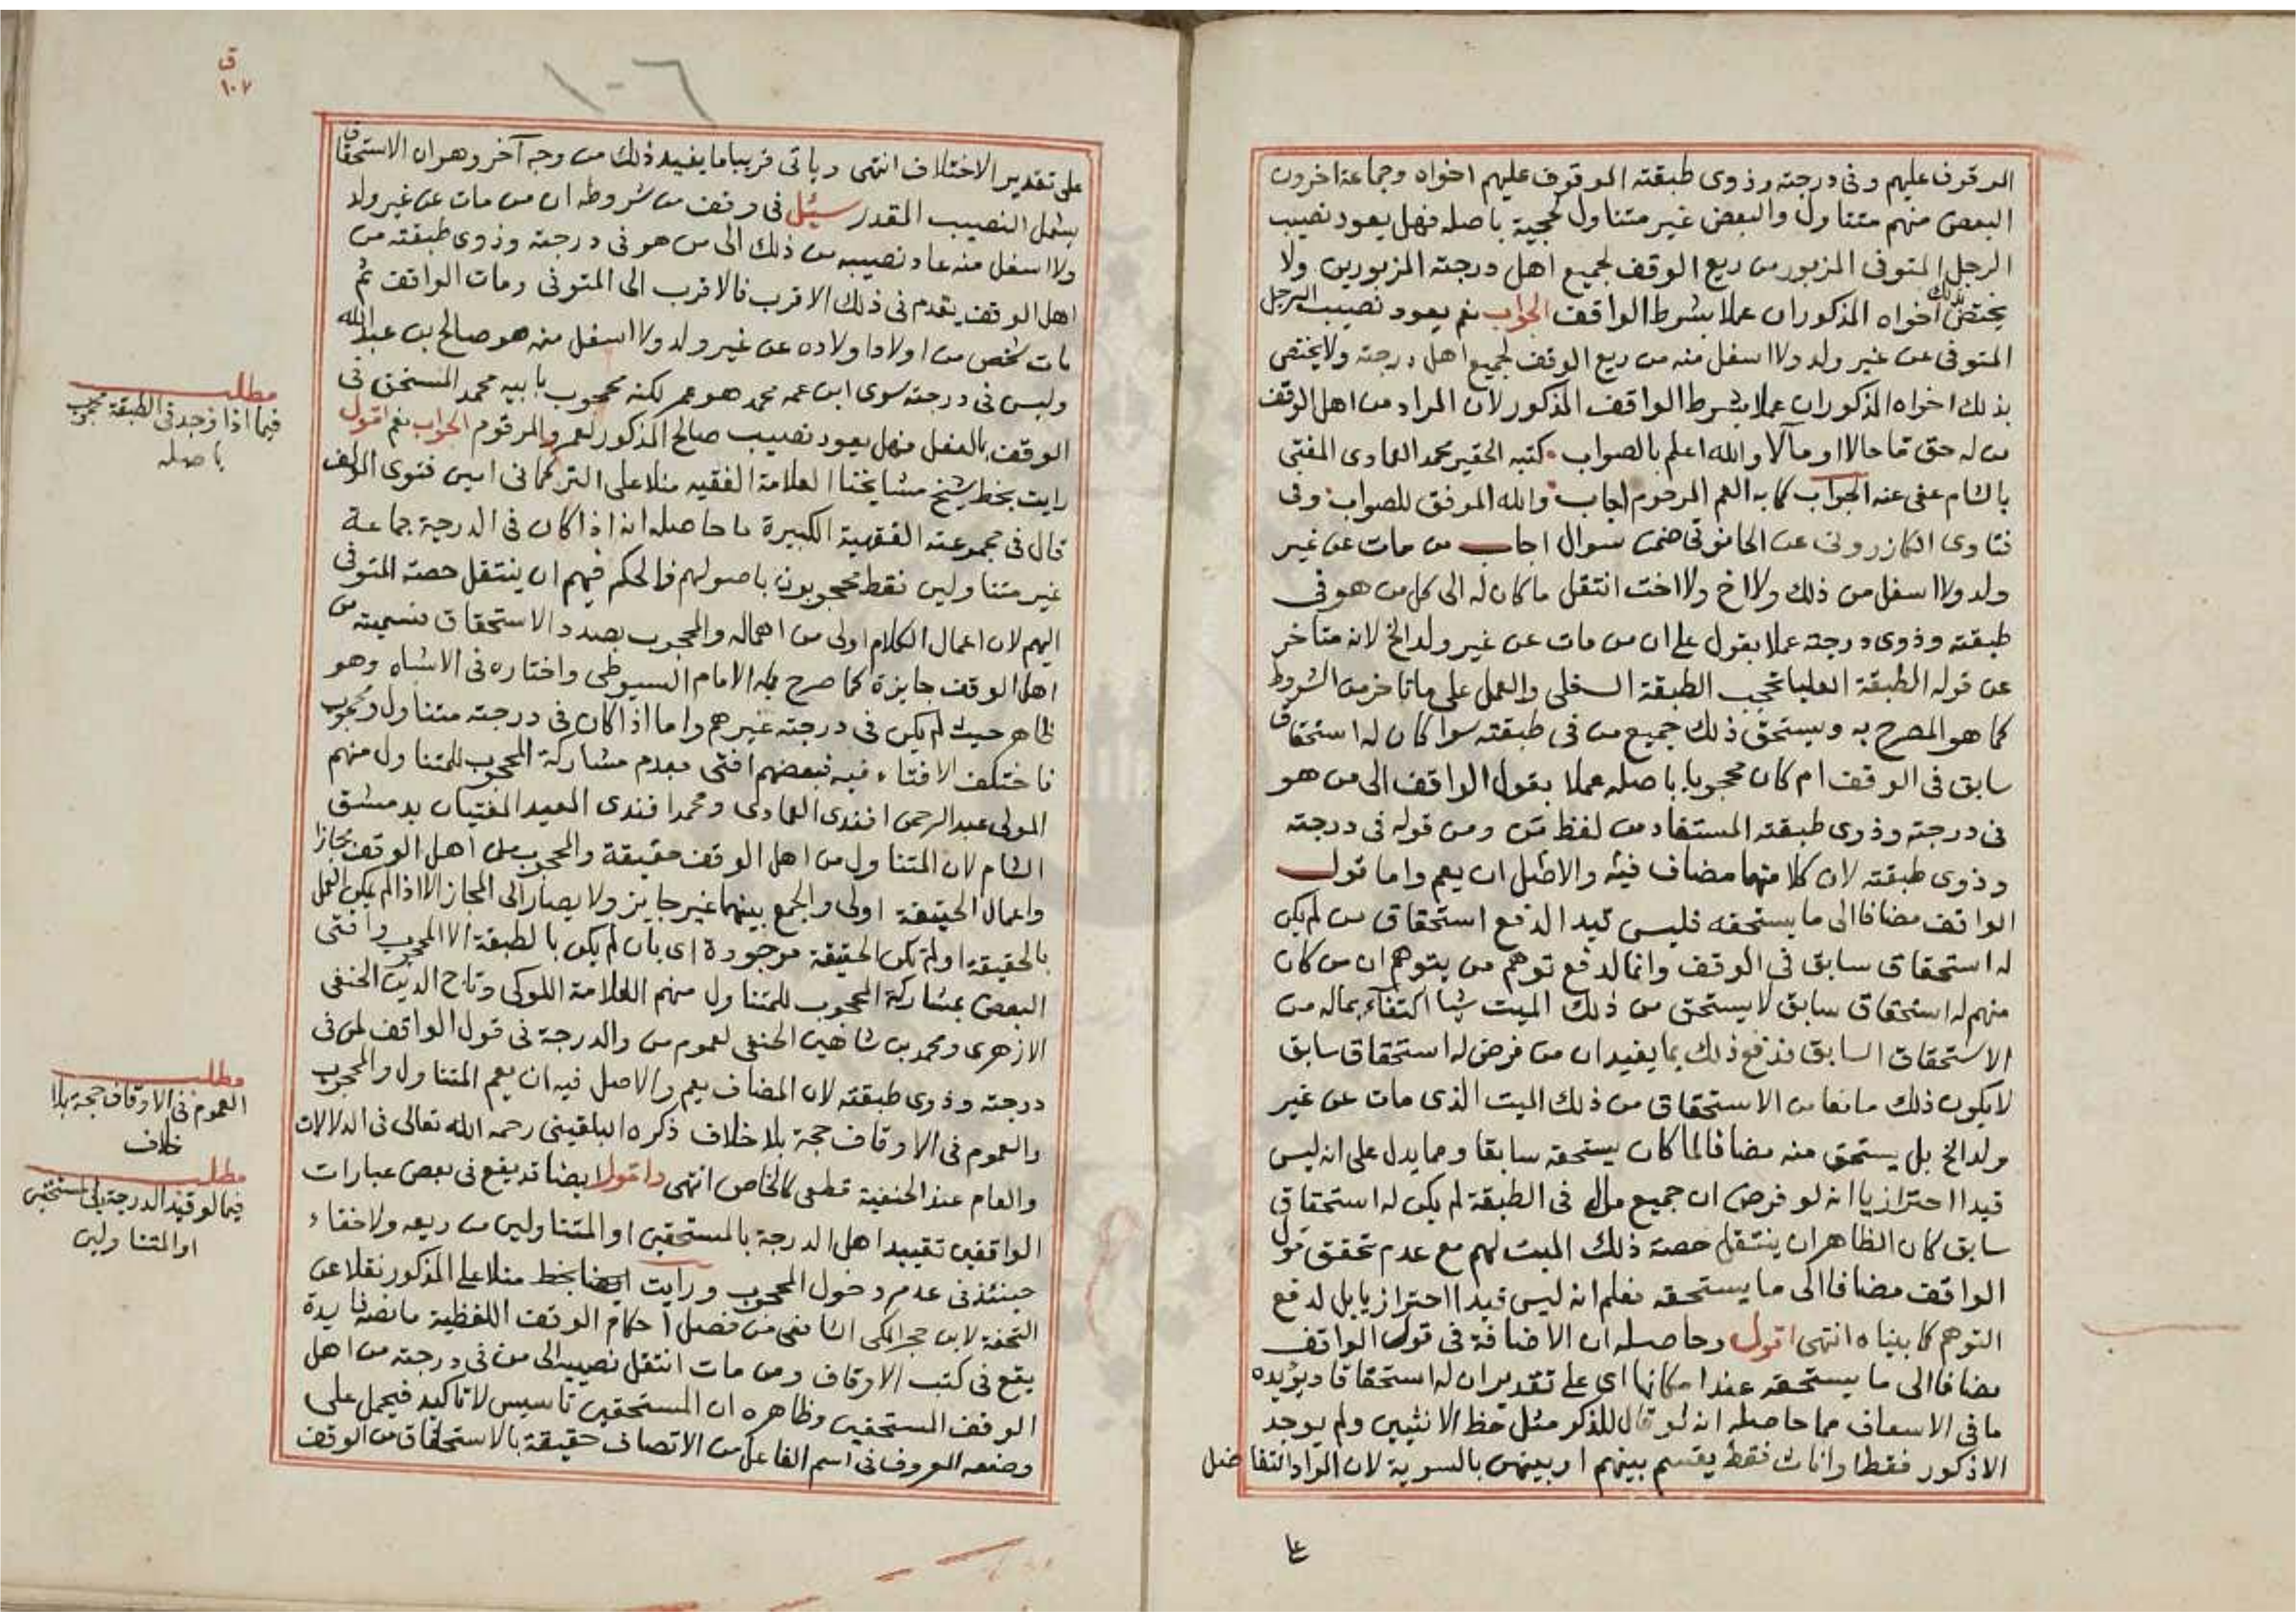 الموقوف عليهم وفى درجته وذوى طبقته الموقوف عليهم اخواه وجماعة اخرون
البعض منهم متناول والبعض غير متناول لحجبه باصله فهل يعود نصيب
الرجل المتوفى المزبور من ريع الوقف لجميع اهل درجته المزبورين ولا
يختص بذلك اخواه المذكوران عملا بشرط الواقف الجواب نعم يعود نصيب الرجل
المتوفى عن غير ولد ولا اسفل منه من ريع الوقف لجميع اهل درجته ولا يختص
بذلك اخواه المذكوران عملا بشرط الواقف المذكور لان المراد من اهل الوقف
من له حق ما حالا او مآلا والله اعلم بالصواب كتبه الحقير محمد العمادى المفتى
بالشام عفى عنه الجواب كما به العم المرحوم اجاب والله الموفق للصواب وفى
فتاوى الكازرونى عن الحانوتى ضمن سوال اجاب من مات عن غير
ولد ولا اسفل من ذلك ولا اخ ولا اخت انتقل ما كان له الى كل من هو فى
طبقته وذوى درجته عملا بقول على ان من مات عن غير ولد الخ لانه متاخر
عن قوله الطبقة العليا تحجب الطبقة السفلى والعمل على ما تاخر من الشروط
كما هو المصرح به ويستحق ذلك جميع من فى طبقته سوا كان له استحقاق
سابق فى الوقف ام كان محجوبا باصله عملا بقول الواقف الى من هو
فى درجته وذوى طبقته المستفاد من لفظ من ومن قوله فى درجته
وذوى طبقته لان كلا منهما مضاف فيه والاصل ان يعم واما قول
الواقف مضافا الى ما يستحقه فليس قيد الدفع استحقاق من لم يكن
له استحقاق سابق فى الوقف وانما لدفع توهم من يتوهم ان من كان
منهم له استحقاق سابق لا يستحق من ذلك الميت شيا اكتفاء بماله من
الاستحقاق السابق فدفع ذلك بما يفيد ان من فرض له استحقاق سابق
لا يكون ذلك مانعا من الاستحقاق من ذلك الميت الذى مات عن غير
ولد الخ بل يستحق منه مضافا لما كان يستحقه سابقا ومما يدل على انه ليس
قيدا احترازيا انه لو فرض ان جميع من فى الطبقة لم يكن له استحقاق
سابق كان الظاهر ان ينتقل حصة ذلك الميت لهم مع عدم تحقق قول
الواقف مضافا الى ما يستحقه فعلم انه ليس قيدا احترازيا بل لدفع
التوهم كما بيناه انتهى اقول وحاصله ان الاضافة فى قول الواقف
مضافا الى ما يستحقه عند امكانها اى على تقدير ان له استحقاقا ويؤيده
ما فى الاسعاف مما حاصله انه لو قال للذكر مثل حظ الانثيين ولم يوجد
الا ذكور فقط او اناث فقط يقسم بينهم او بينهن بالسوية لان المراد التفاضل
على
ق
١٠٧
١٠٦
على تقدير الاختلاف انتهى وياتى قريبا ما يفيد ذلك من وجه آخر وهو ان الاستحقاق
يشمل النصيب المقدر سئل فى وقف من شروطه ان من مات عن غير ولد
ولا اسفل منه عاد نصيبه من ذلك الى من هو فى درجته وذوى طبقته من
اهل الوقف يقدم فى ذلك الاقرب فالاقرب الى المتوفى ومات الواقف ثم
مات شخص من اولاد اولاده عن غير ولد ولا اسفل منه هو صالح بن عبد الله
وليس فى درجته سوى ابن عمه محمد هو عمر لكنه محجوب بابيه محمد المستحق فى
الوقف بالفعل فهل يعود نصيب صالح المذكور لعمر والمرقوم الجواب نعم اقول
رايت بخط شيخ مشايخنا العلامة الفقيه منلا على التركمانى امين فتوى المولف
قال فى مجموعته الفقهية الكبيرة ما حاصله انه اذا كان فى الدرجة جماعة
غير متناولين فقط محجوبون باصولهم فالحكم فيهم ان ينتقل حصة المتوفى
اليهم لان اعمال الكلام اولى من اهماله والمحجوب بصدد الاستحقاق فتسميته من
اهل الوقف جايزة كما صرح به الامام السيوطى واختاره فى الاشباه وهو
ظاهر حيث لم يكن فى درجته غيرهم واما اذا كان فى درجته متناول ومحجوب
فاختلف الافتاء فيه فبعضهم افتى بعدم مشاركة المحجوب للمتناول منهم
المولى عبد الرحمن افندى العمادى ومحمد افندى العيد المفتيان بدمشق
الشام لان المتناول من اهل الوقف حقيقة والمحجوب من اهل الوقف مجازا
واعمال الحقيقة اولى والجمع بينهما غير جايز ولا يصار الى المجاز الا اذا لم يكن العمل
بالحقيقة او لم تكن الحقيقة موجودة اى بان لم يكن بالطبقة الا المحجوب وافتى
البعض بمشاركة المحجوب للمتناول منهم العلامة اللوكى وتاج الدين الحنفى
الازهرى ومحمد بن شاهين الحنفى لعموم من والدرجة فى قول الواقف لمن فى
درجته وذوى طبقته لان المضاف يعم والاصل فيه ان يعم المتناول والمحجوب
والعموم فى الاوقاف حجة بلا خلاف ذكره البلقينى رحمه الله تعالى فى الدلالات
والعام عند الحنفية قطعى كالخاص انتهى واقول ايضا قد يقع فى بعض عبارات
الواقفين تقييد اهل الدرجة بالمستحقين او المتناولين من ريعه ولا خفاء
حينئذ فى عدم دخول المحجوب ورايت ايضا بخط منلا على المذكور نقلا عن
التحفة لابن حجر المكى الشافعى من فصل احكام الوقف اللفظية ما نصه فايدة
يقع فى كتب الاوقاف ومن مات انتقل نصيبه الى من فى درجته من اهل
الوقف المستحقين وظاهره ان المستحقين تاسيس لا تاكيد فيحمل على
وضعه المعروف فى اسم الفاعل من الاتصاف حقيقة بالاستحقاق من الوقف
مطلب
فيما اذا وجد فى الطبقة محجوب
باصله
مطلب
العموم فى الاوقاف حجة بلا
خلاف
مطلب
فيما لو قيد الدرجة بالمستحقين
او المتناولين